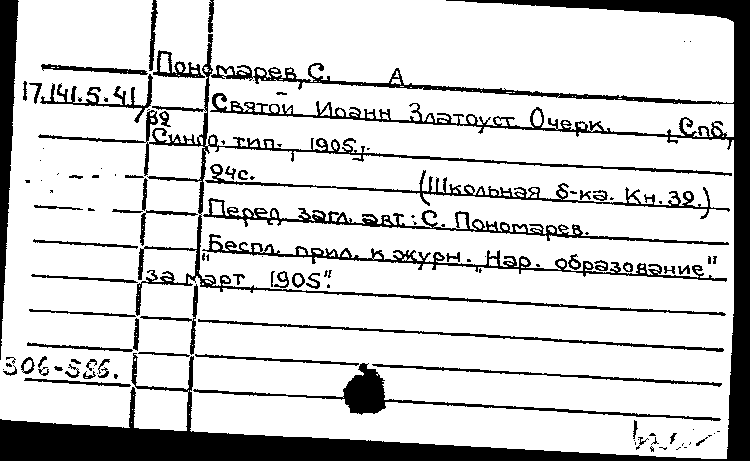 Пономарев, С. А.
17.141.5.41/32
Святой Иоанн Златоуст Очерк. [Спб,
Синод. тип., 1905].
24с. (Школьная б-ка. Кн. 32.)
Перед загл. авт.: С. Пономарев.
"Беспл. прил. к журн. „Нар. образование"
за март, 1905".
306-586.